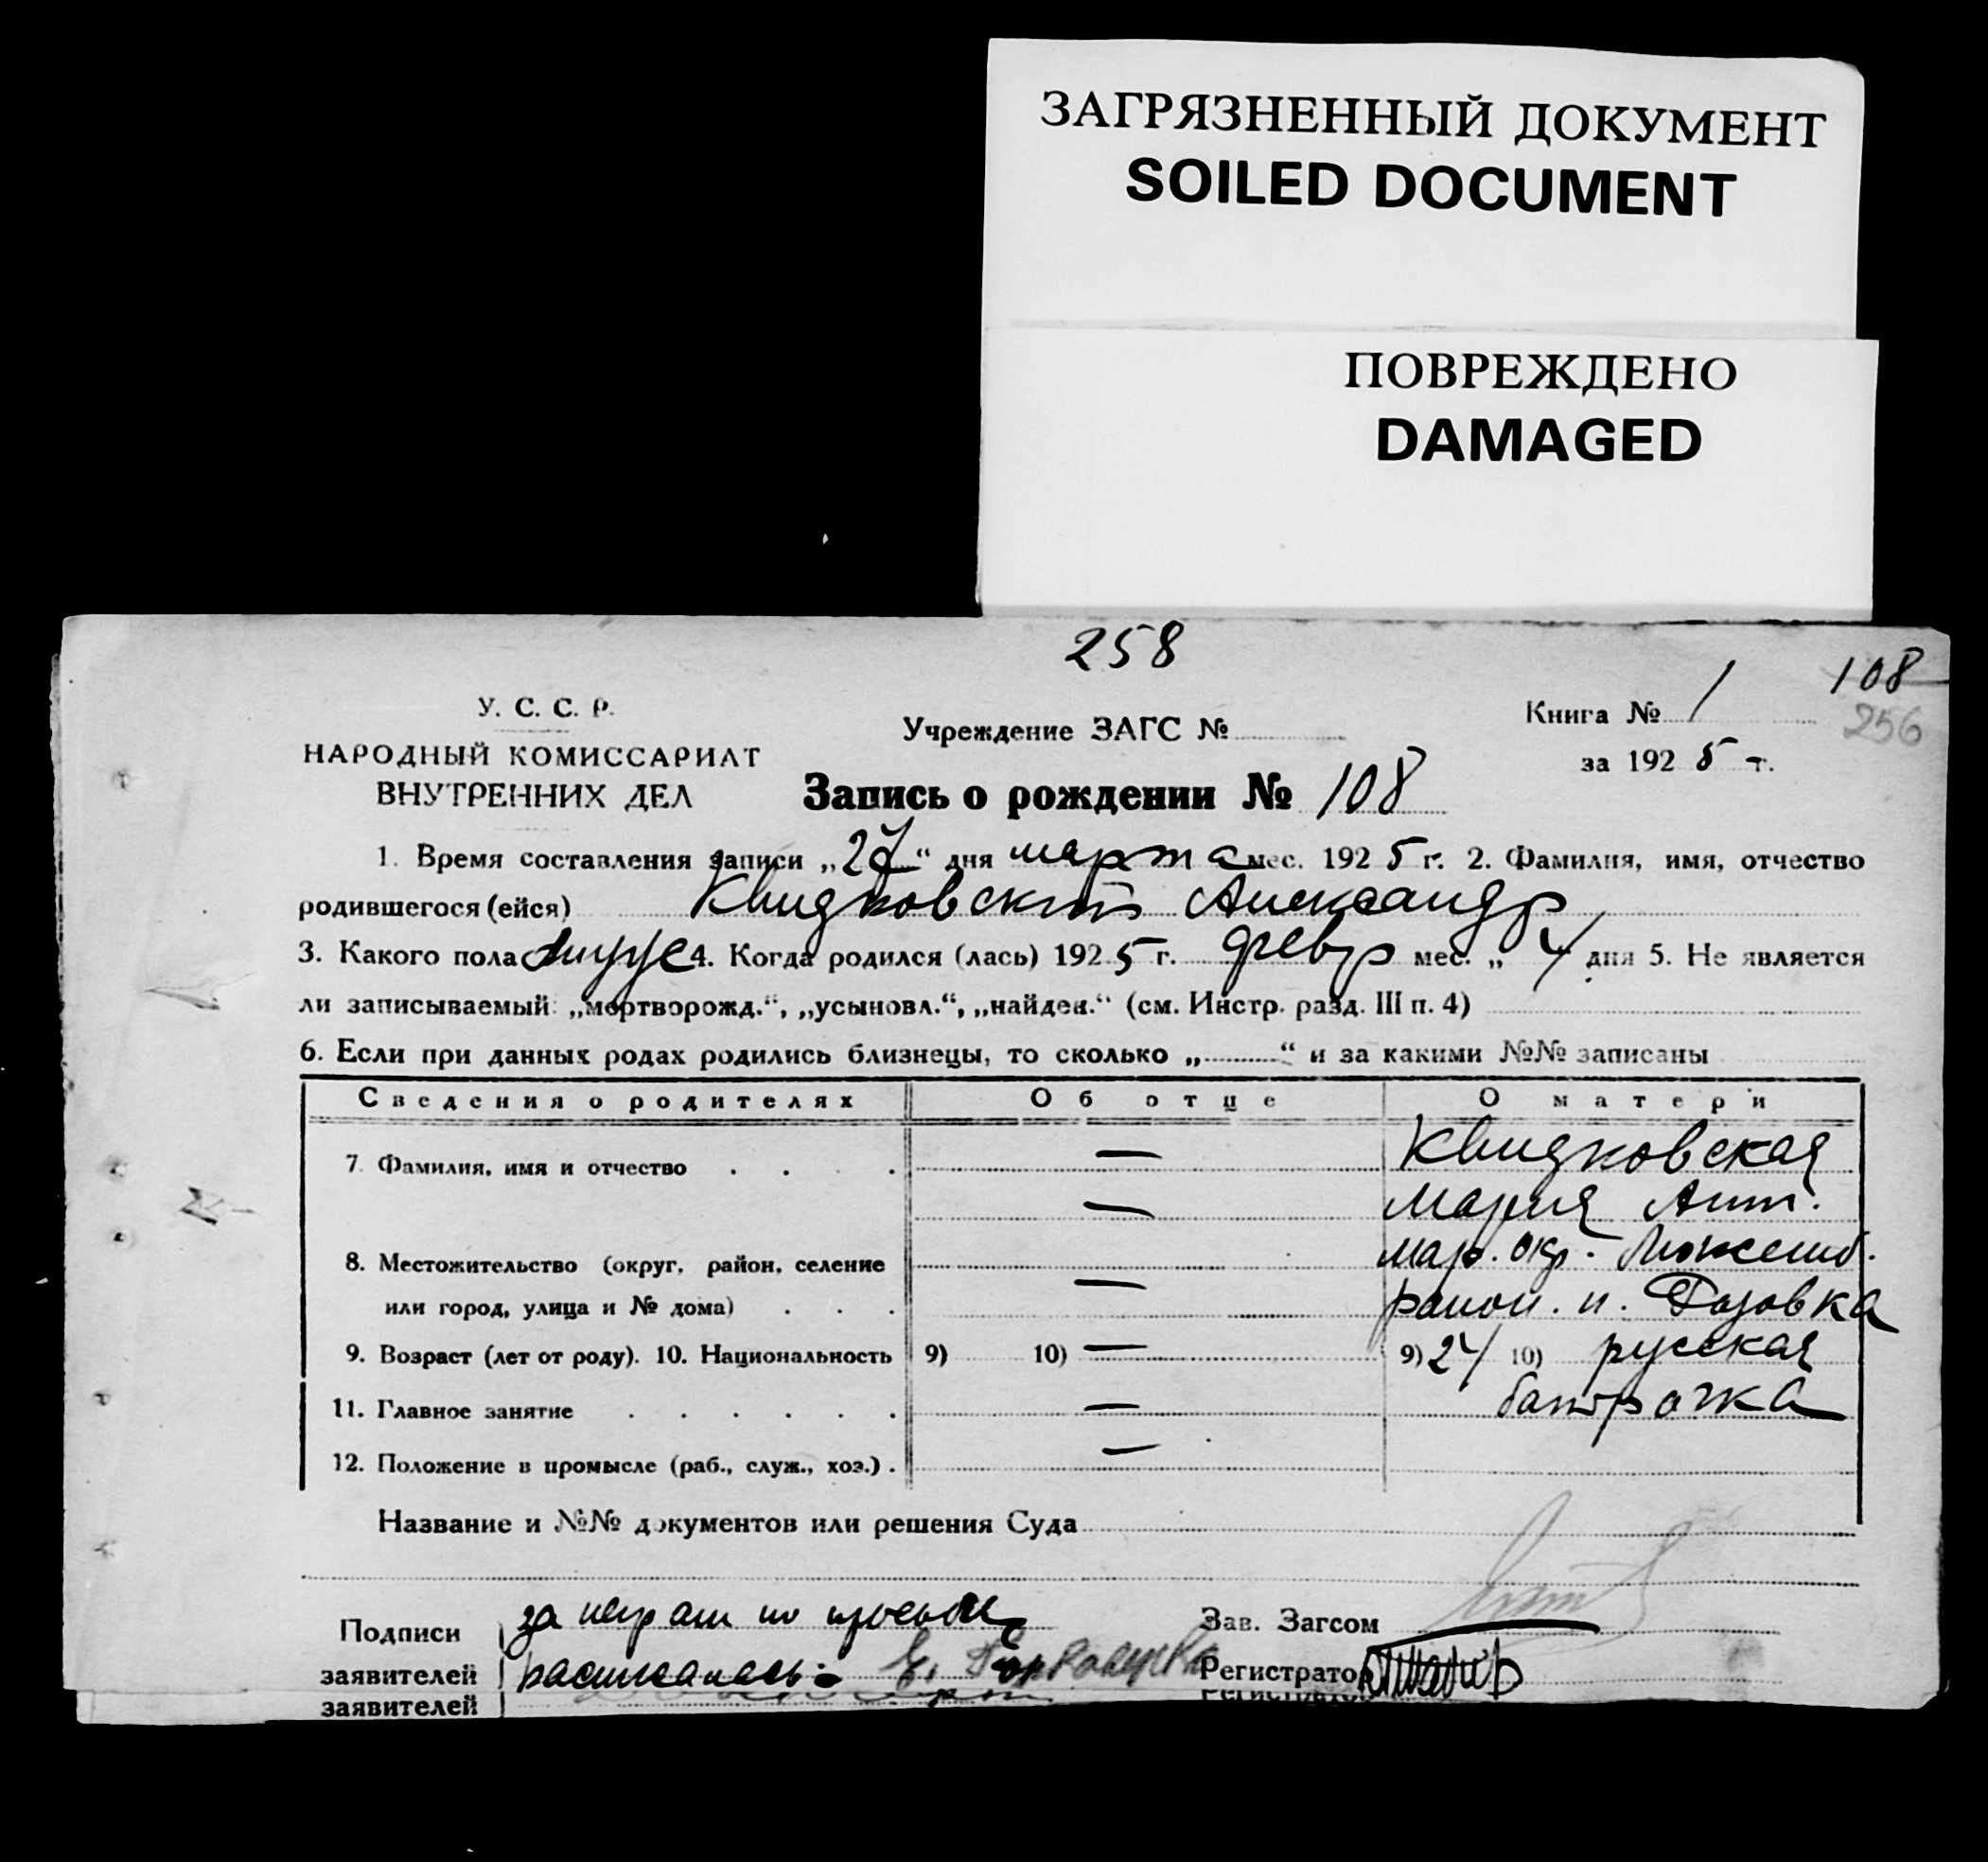 ЗАГРЯЗНЕННЫЙ ДОКУМЕНТ
SOILED DOCUMENT
ПОВРЕЖДЕНО
DAMAGED
258
108
256
У. С. С. Р.
НАРОДНЫЙ КОМИССАРИАТ
ВНУТРЕННИХ ДЕЛ
Учреждение ЗАГС №
Книга № 1
за 1925 г.
Запись о рождении № 108
1. Время составления записи „27“ дня марта мес. 1925 г. 2. Фамилия, имя, отчество
родившегося (ейся) Квидковский Александр
3. Какого пола муж 4. Когда родился (лась) 1925 г. февр мес. „ 4 дня 5. Не является
ли записываемый: „мертворожд.“, „усыновл.“, „найден.“ (см. Инстр. разд. III п. 4)
6. Если при данных родах родились близнецы, то сколько „..........“ и за какими №№ записаны
Сведения о родителях Об отце О матери
7. Фамилия, имя и отчество . . . . — Квидковская
— Мария Ант.
8. Местожительство (округ, район, селение Мар. окр.
или город, улица и № дома) . . . — район.
9. Возраст (лет от роду). 10. Национальность 9) 10) — 9) 24 10) русская
11. Главное занятие . . . . . . — батрачка
12. Положение в промысле (раб., служ., хоз.) . —
Название и №№ документов или решения Суда
Подписи за неграм по просьбе
Зав. Загсом
заявителей расписалась:
Регистратор
заявителей